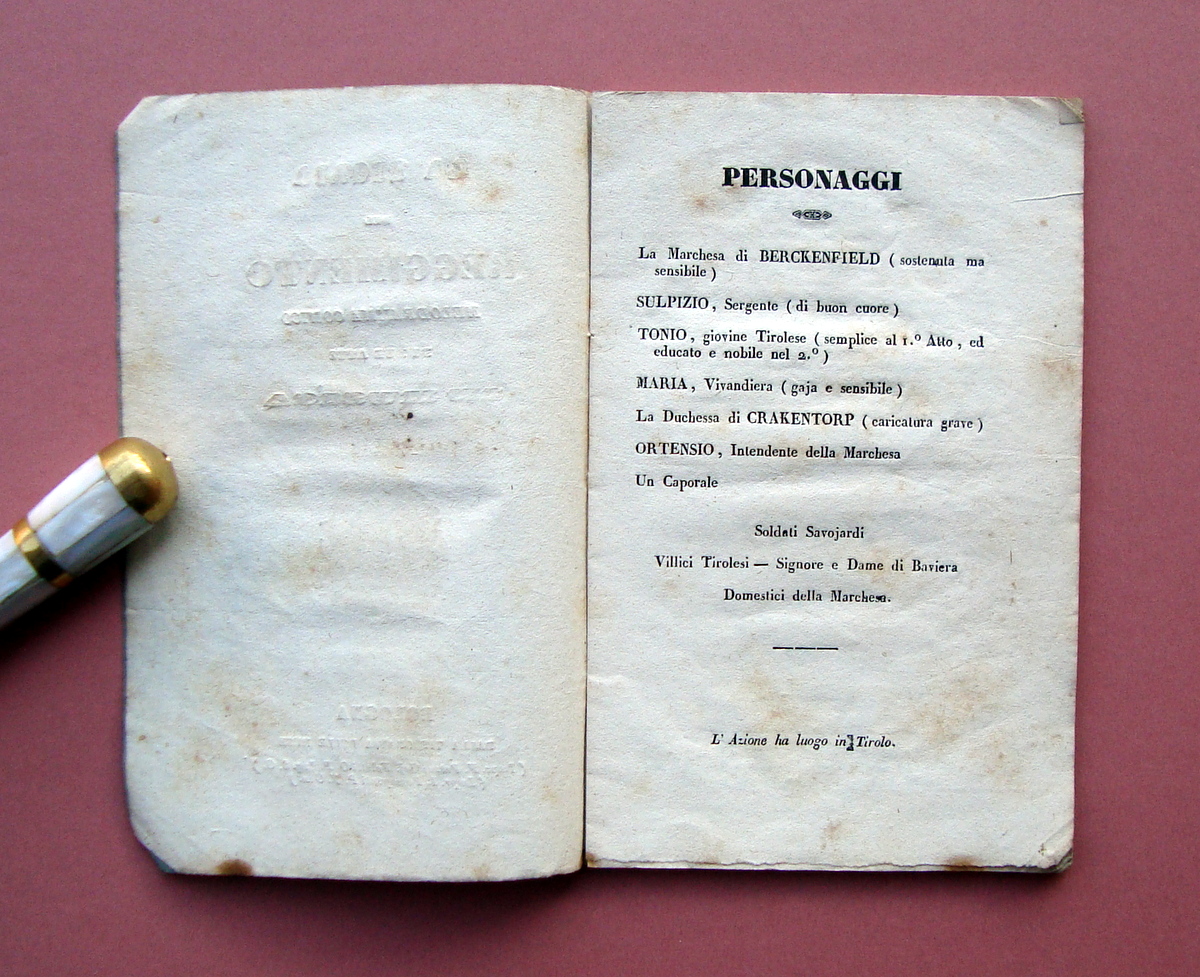 PERSONAGGI
La Marchesa di BERCKENFIELD ( sostenuta ma
sensibile )
SULPIZIO, Sergente ( di buon cuore )
TONIO, giovine Tirolese ( semplice al 1.º Atto, ed
educato e nobile nel 2.º )
MARIA, Vivandiera ( gaja e sensibile )
La Duchessa di CRAKENTORP ( caricatura grave )
ORTENSIO, Intendente della Marchesa
Un Caporale
Soldati Savojardi
Villici Tirolesi — Signore e Dame di Baviera
Domestici della Marchesa.
L' Azione ha luogo in Tirolo.